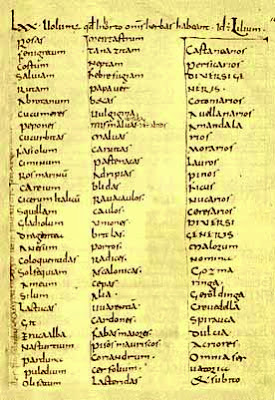 Lxx. Uolumus qd In horto oms herbas habeant. Id: Lilium.
Rosas
Fenigrecum
Costum
Saluiam
Rutam
Abrotanum
Cucumeres
Pepones
Cucurbitas
Fasiolum
Ciminum
Rosmarinū
Careium
Cicerum italicū
Squillam
Gladiolum
Dragantea
Anesum
Coloquentidas
Solsequiam
Ameum
Silum
Lactucas
Git
Eruca alba
Nasturtium
parduna
puledium
Olisatum
Tanazitam
Neptam
Febrefugiam
papauer
betas
Uulgigina
mismaluas
maluas
Carutas
pastenacas
Adripias
blidas
Rauacaulos
Caulos
Uniones
britlas
porros
Radices
Ascalonicas
Cepas
Alia
Uuarentia
Cardones
Fabas maiores
pisos mauriscos
Coriandrum
Cerfolium
Lacteridas
Castanearios
Persicarios
DIVERSI GE
NERIS
Cotoniarios
Auellanarios
Amandala
rios
Morarios
Lauros
pinos
Ficus
Nucarios
Ceresarios
DIVERSI
GENERIS
malorum
Nomina
Gozma
ringa
Geroldinga
Creuedella
Spirauca
Dulcia
Acriores
Omnia ser
uatoria
& subito